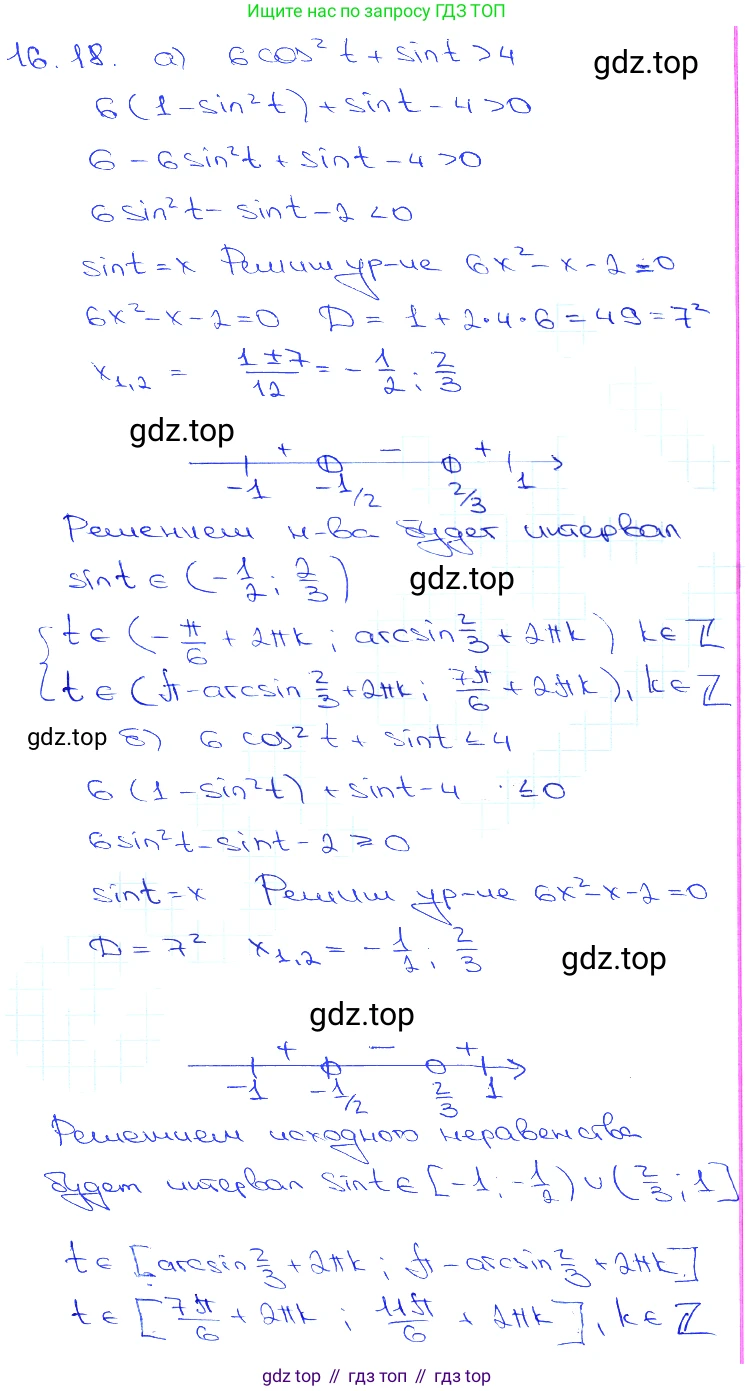 Ищите нас по запросу ГДЗ ТОП
16.18. а) 6cos²t + sint > 4
gdz.top
6(1 - sin²t) + sint - 4 > 0
6 - 6sin²t + sint - 4 > 0
6sin²t - sint - 2 < 0
sint = x Решим ур-ие 6x² - x - 2 = 0
6x² - x - 2 = 0 D = 1 + 2·4·6 = 49 = 7²
x₁,₂ = (1 ± 7)/12 = -1/2; 2/3
gdz.top
+ - +
-1 -1/2 2/3 1
Решением н-ва будет интервал
sint ∈ (-1/2; 2/3)
gdz.top
{ t ∈ (-π/6 + 2πk; arcsin 2/3 + 2πk) k ∈ Z
t ∈ (π - arcsin 2/3 + 2πk; 7π/6 + 2πk), k ∈ Z
gdz.top
б) 6cos²t + sint ≤ 4
6(1 - sin²t) + sint - 4 ≤ 0
6sin²t - sint - 2 ≥ 0
sint = x Решим ур-ие 6x² - x - 2 = 0
D = 7² x₁,₂ = -1/2; 2/3
gdz.top
gdz.top
+ - +
-1 -1/2 2/3 1
Решением исходного неравенства
будет интервал sint ∈ [-1; -1/2) ∪ (2/3; 1]
t ∈ [arcsin 2/3 + 2πk; π - arcsin 2/3 + 2πk]
t ∈ [7π/6 + 2πk; 11π/6 + 2πk], k ∈ Z
gdz top // гдз топ // gdz top